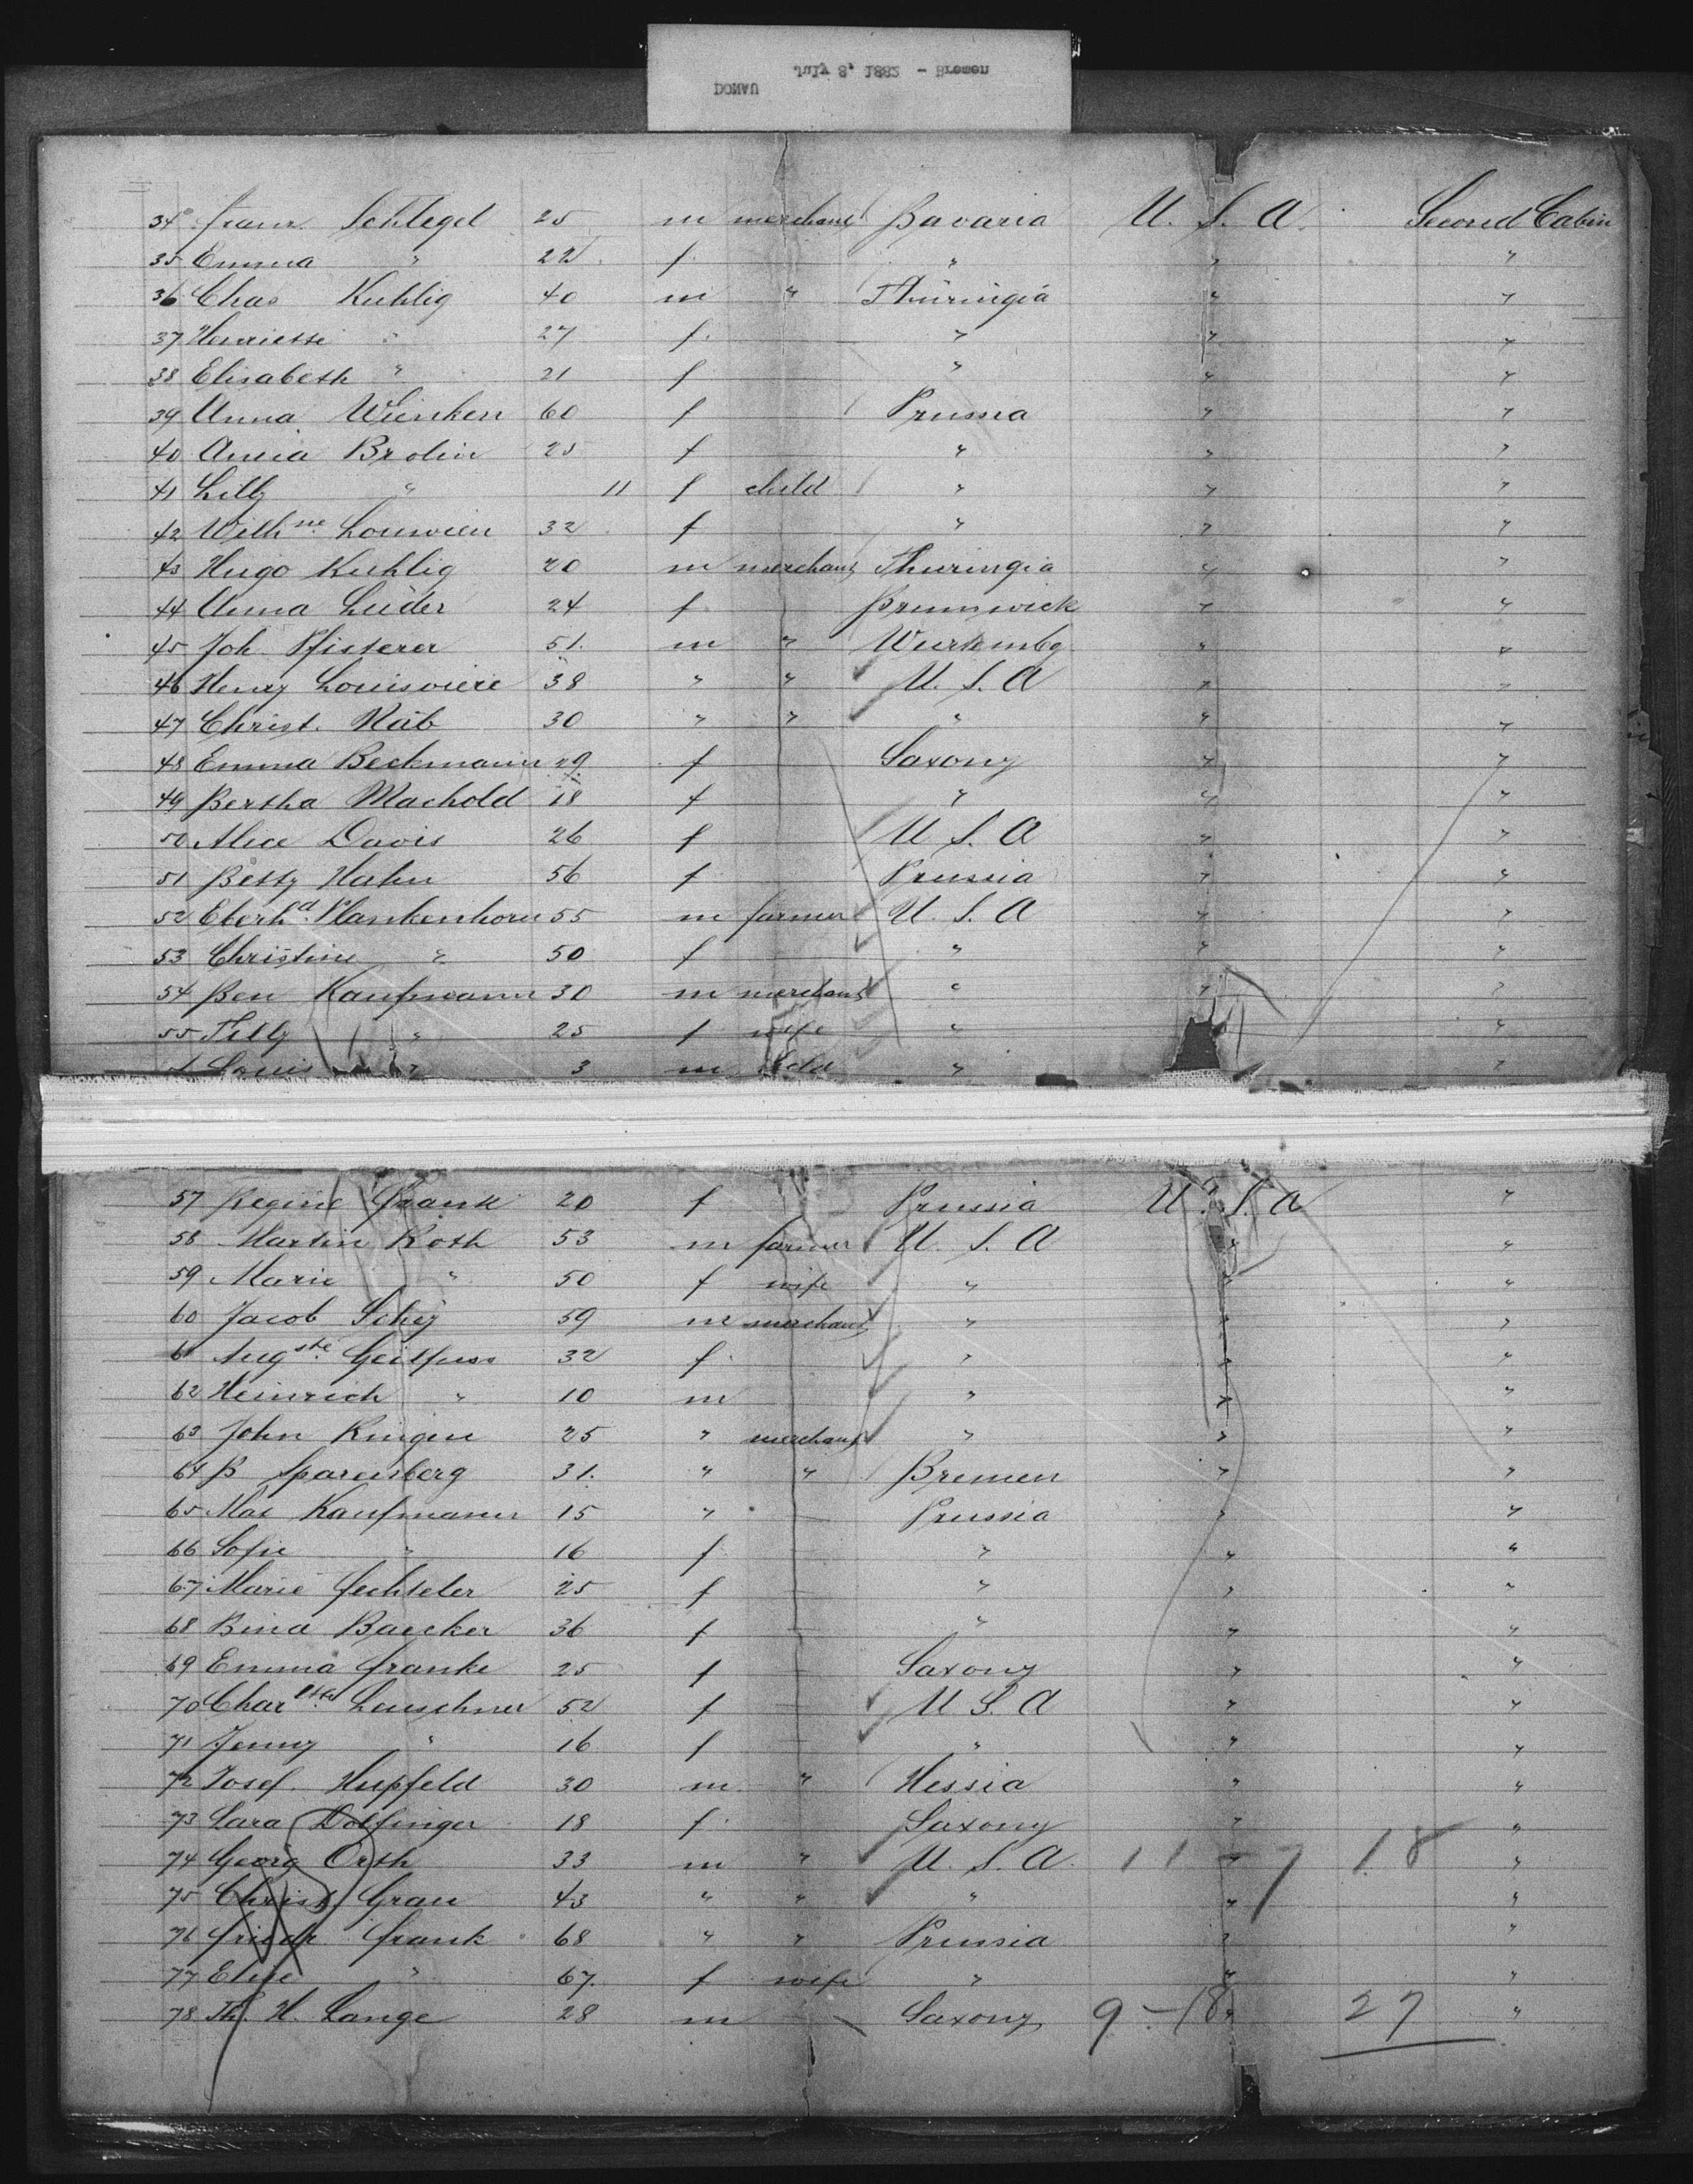 July 8, 1882 - Bremen
DONAU
34 Franz Schlegel 25 m merchant Bavaria U. S. A. Second Cabin
35 Emma " 22 f " " "
36 Chas Kuhlig 40 m " Thuringia " "
37 Henriette " 27 f. " " "
38 Elisabeth " 21 f " " "
39 Anna Wünken 60 f Prussia " "
40 Anna Brolin 25 f " " "
41 Lilly " 11 f child " " "
42 Wilhne 32 f " " "
43 Hugo Kuhlig 20 m merchant Thuringia " "
44 Anna Lüder 24 f Brunswick " "
45 Joh. Pfisterer 51. m " Wurtembg " "
46 Henry Louisviere 38 " " U. S. A " "
47 Christ. Räb 30 " " " " "
48 Emma Beckmann 29 f Saxony " "
49 Bertha Machold 18 f " " "
50 Alice Davis 26 f U S. A " "
51 Betty Hahn 56 f Prussia " "
52 Eberhd. Blankenhorn 55 m farmer U. S. A " "
53 Christine " 50 f " " "
54 Ben Kaufmann 30 m merchant " " "
55 Tilly " 25 f wife " " "
Louis " 3 m child " "
57 Regine Frank 20 f Prussia U. S. A "
58 Martin Roth 53 m farmer U. S. A " "
59 Marie " 50 f wife " " "
60 Jacob 59 m merchant " " "
61 Augste. Geilfuss 32 f " " "
62 Heinrich " 10 m " " "
63 John Ringen 25 " merchant " " "
64 B Sparenberg 31. " " Bremen " "
65 Max Kaufmann 15 " Prussia " "
66 Sofie " 16 f " " "
67 Marie Fechteler 25 f " " "
68 Bina Baecker 36 f " " "
69 Emma Franke 25 f Saxony " "
70 Charltte Leuschner 52 f U S. A " "
71 Jenny " 16 f " " "
72 Josef. Hupfeld 30 m. " Hessia " "
73 Sara Dolfinger 18 f. Saxony " "
74 Georg Orth 33 m " U. S. A. 11 7 18 " "
75 Christ Grau 43 " " " " "
76 Friedr Frank 68 " " Prussia " "
77 Elise " 67. f wife " " "
78 Th. H. Lange 28 m Saxony 9-18 " 27 "